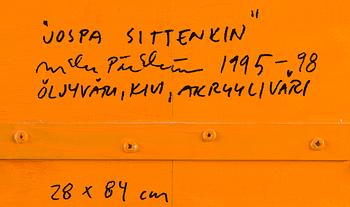 "JOSPA SITTENKIN"
1995-98
ÖLJYVÄRI, KIVI, AKRYYLIVÄRI
28 x 84 cm